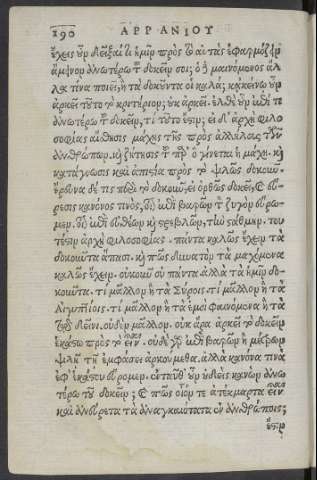 190 ΑΡΡΙΑΝΟΥ
ἔχεις οὖν δεῖξαί τι ἡμῖν πρὸς τὸ αὐτὰς ἐφαρμόζειν
ἄμεινον ἀνωτέρω τοῦ δοκεῖν σοι; ὁ δὲ μαινόμενος ἄλ
λα τινὰ ποιεῖ, ἢ τὰ δοκοῦντα οἱ καλά; κἀκείνῳ οὖν
ἀρκεῖ τοῦτο τὸ κριτήριον; οὐκ ἀρκεῖ. ἐλθὲ οὖν ἐπί τι
ἀνωτέρω τοῦ δοκεῖν, τί τοῦτό ἐστιν; ἴδ' ἀρχὴ φιλο
σοφίας αἴσθησις μάχης τῆς πρὸς ἀλλήλους τῶν
ἀνθρώπων. καὶ ζήτησις τοῦ παρ' ὃ γίνεται ἡ μάχη. καὶ
κατάγνωσις καὶ ἀπιστία πρὸς τὸ ψιλῶς δοκοῦν.
ἔρευνα δέ τις περὶ τὸ δοκοῦν, εἰ ὀρθῶς δοκεῖ, καὶ εὕ
ρεσις κανόνος τινός, οἷον ἐπὶ βαρῶν τὸν ζυγὸν εὕρο
μεν. οἷον ἐπὶ εὐθέων καὶ στρεβλῶν, τὴν στάθμην. τοῦ
τ' ἔστιν ἀρχὴ φιλοσοφίας. πάντα καλῶς ἔχειν τὰ
δοκοῦντα ἅπασι. καὶ πῶς δυνατὸν τὰ μαχόμενα
καλῶς ἔχειν. οὐκοῦν οὐ πάντα ἀλλὰ τὰ ἡμῖν δο
κοῦντα. τί μᾶλλον ἢ τὰ Σύροις. τί μᾶλλον ἢ τὰ
Αἰγυπτίοις. τί μᾶλλον ἢ τὰ ἐμοὶ φαινόμενα ἢ τὰ
τῷ δεῖνι. οὐδὲν μᾶλλον. οὐκ ἄρα ἀρκεῖ τὸ δοκεῖν
ἑκάστῳ πρὸς τὸ εἶναι. οὐδὲ γὰρ ἐπὶ βαρῶν ἢ μέτρων
ψιλῇ τῇ ἐμφάσει ἀρκούμεθα. ἀλλὰ κανόνα τινὰ
ἐφ' ἑκάστου εὕρομεν. ἐνταῦθ' οὖν οὐδεὶς κανὼν ἀνω
τέρω τοῦ δοκεῖν; καὶ πῶς οἷόν τε ἀτέκμαρτα εἶναι
καὶ ἀνεύρετα τὰ ἀναγκαιότατα ἐν ἀνθρώποις;
ἔστιν